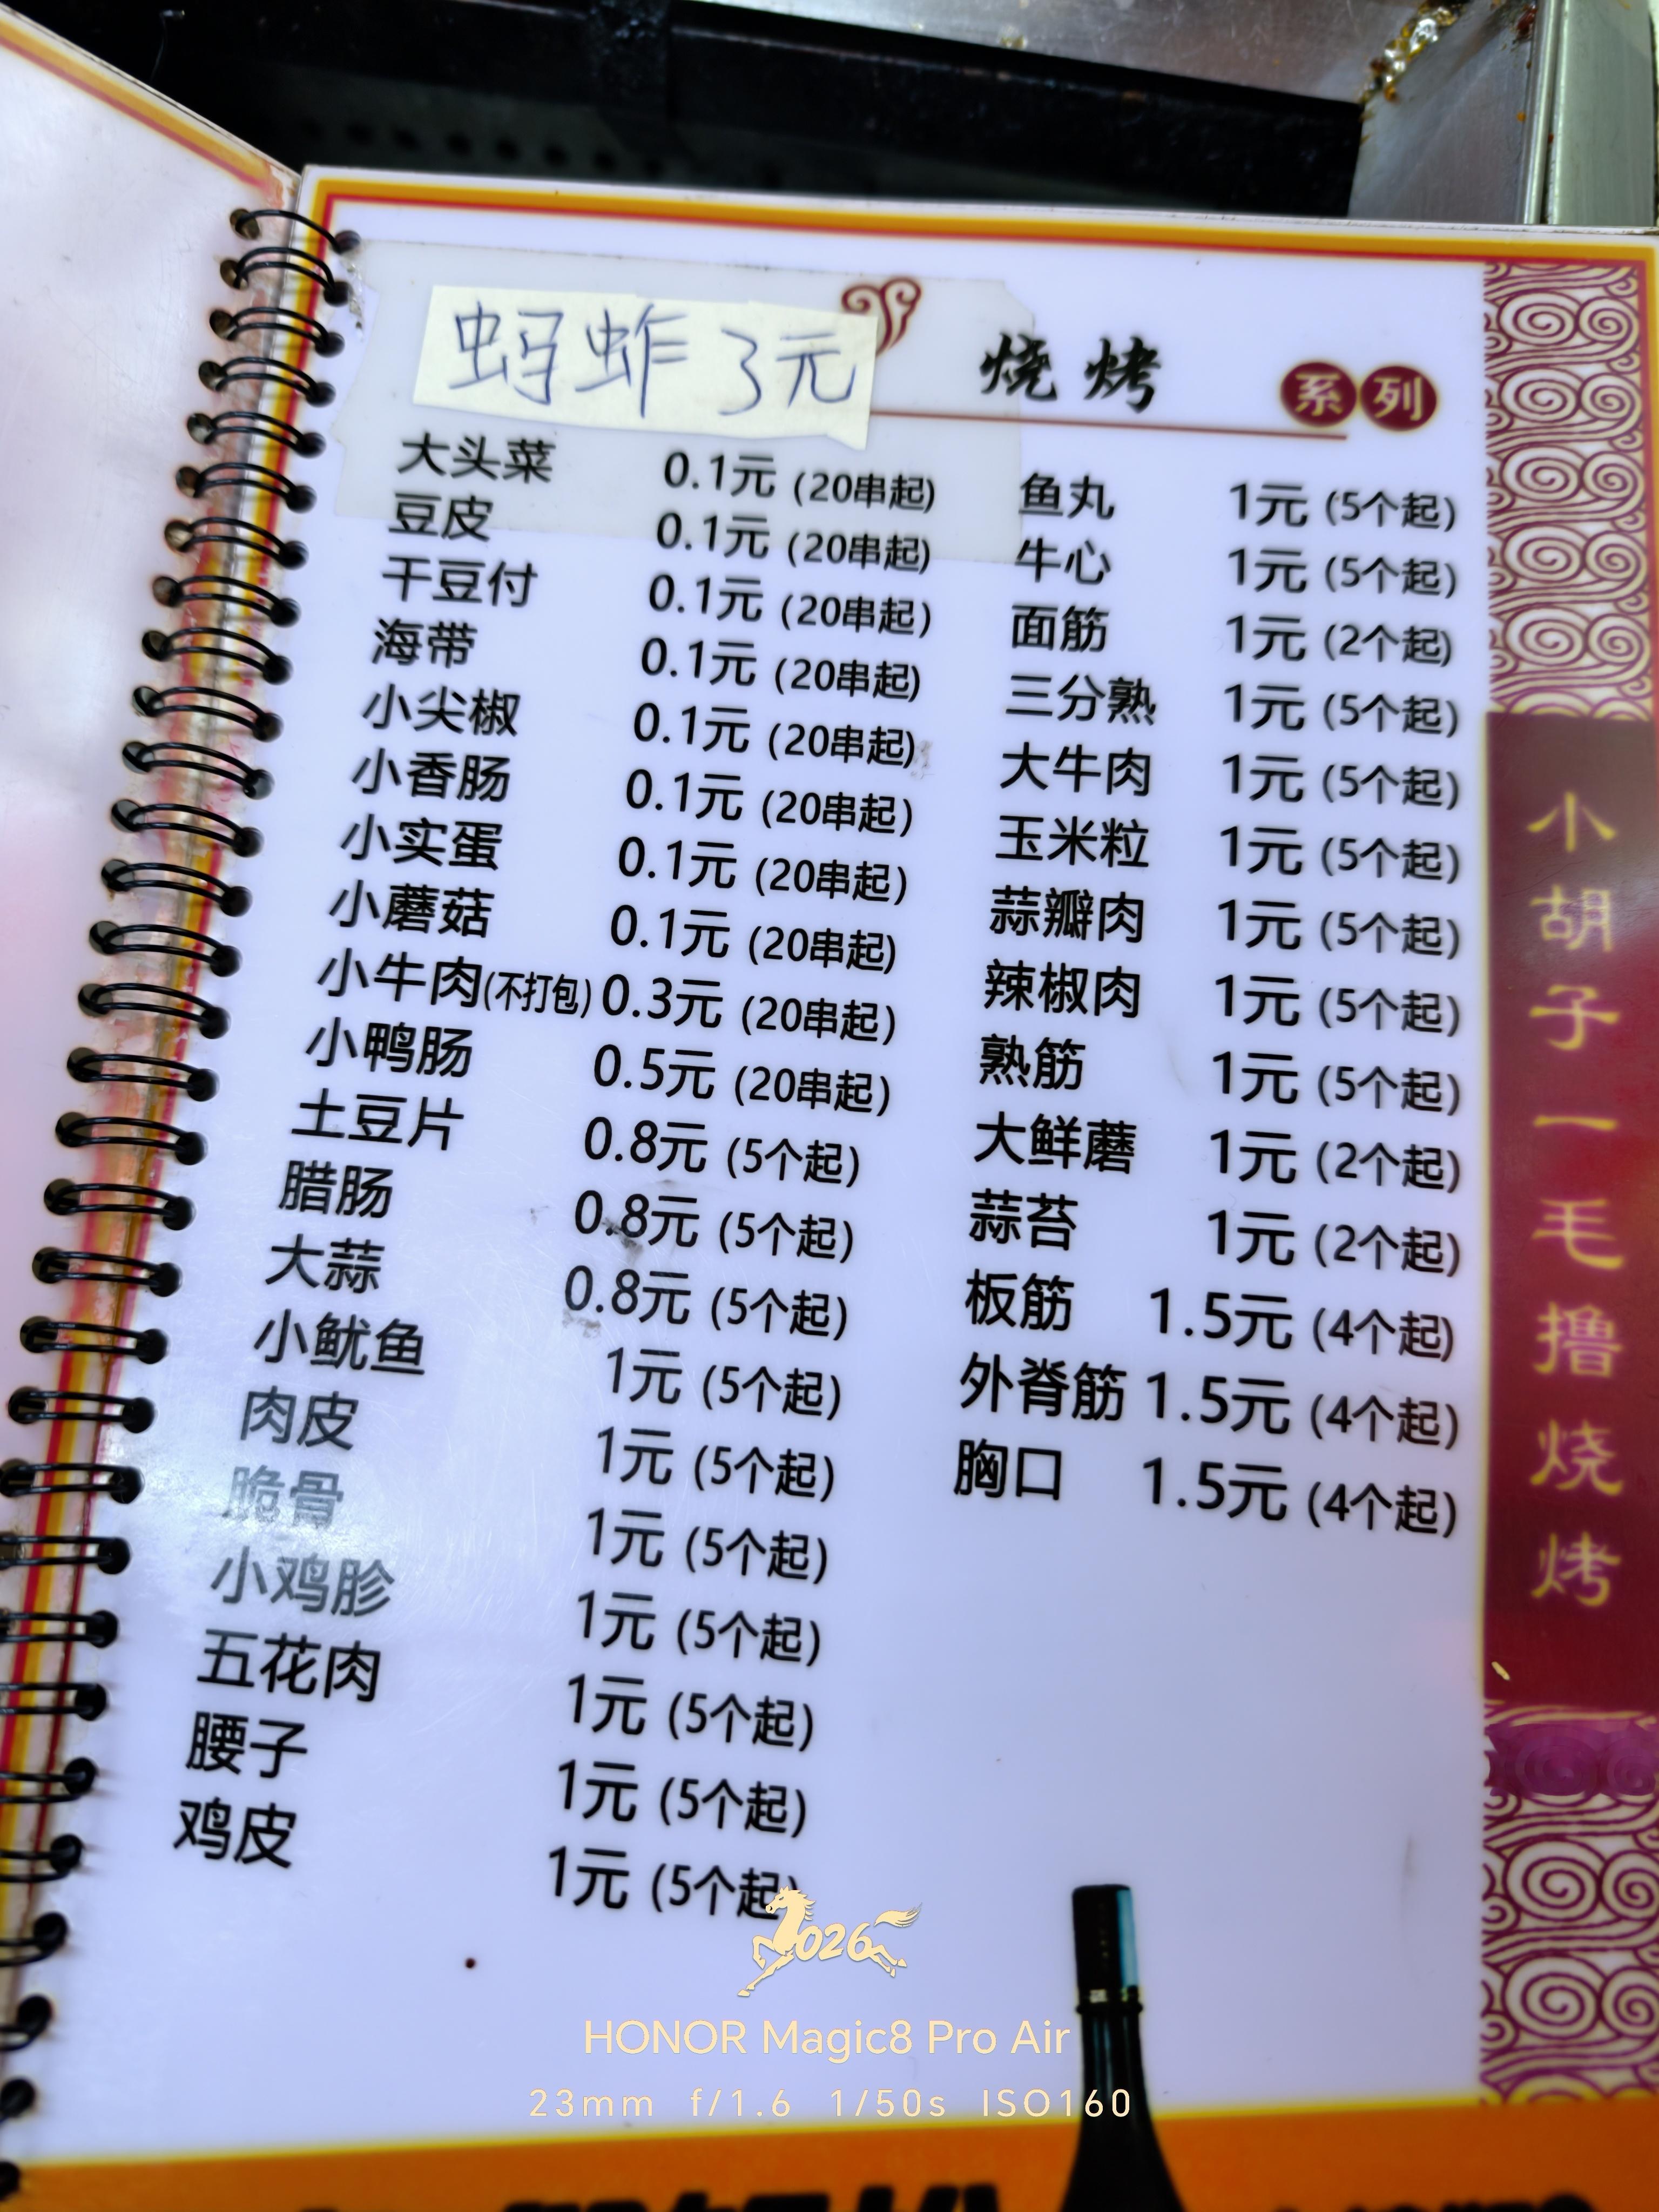 蚂蚱 3元
烧烤 系列
大头菜 0.1元 (20串起)
豆皮 0.1元 (20串起)
干豆付 0.1元 (20串起)
海带 0.1元 (20串起)
小尖椒 0.1元 (20串起)
小香肠 0.1元 (20串起)
小实蛋 0.1元 (20串起)
小蘑菇 0.1元 (20串起)
小牛肉(不打包) 0.3元 (20串起)
小鸭肠 0.5元 (20串起)
土豆片 0.8元 (5个起)
腊肠 0.8元 (5个起)
大蒜 0.8元 (5个起)
小鱿鱼 1元 (5个起)
肉皮 1元 (5个起)
脆骨 1元 (5个起)
小鸡胗 1元 (5个起)
五花肉 1元 (5个起)
腰子 1元 (5个起)
鸡皮 1元 (5个起)
鱼丸 1元 (5个起)
牛心 1元 (5个起)
面筋 1元 (2个起)
三分熟 1元 (5个起)
大牛肉 1元 (5个起)
玉米粒 1元 (5个起)
蒜瓣肉 1元 (5个起)
辣椒肉 1元 (5个起)
熟筋 1元 (5个起)
大鲜蘑 1元 (2个起)
蒜苔 1元 (2个起)
板筋 1.5元 (4个起)
外脊筋 1.5元 (4个起)
胸口 1.5元 (4个起)
小胡子一毛撸烧烤
026
HONOR Magic8 Pro Air
23mm f/1.6 1/50s ISO160